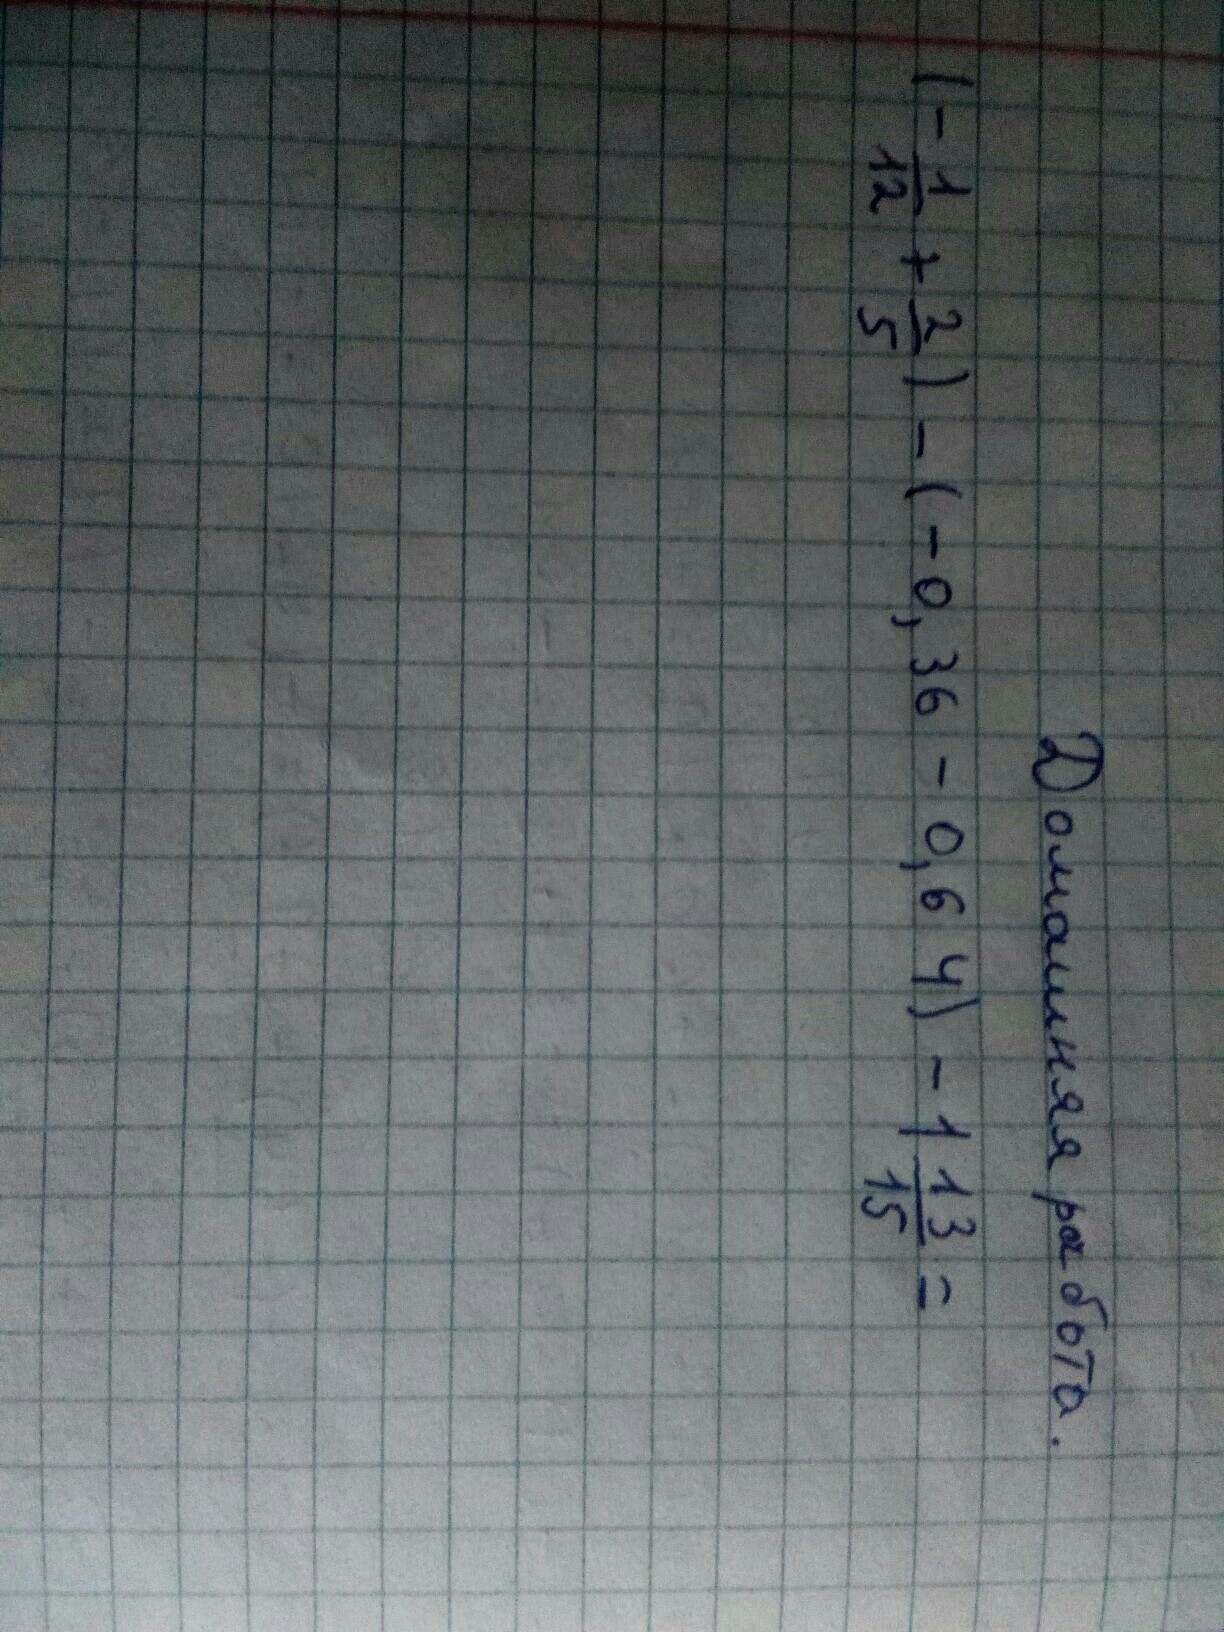 Домашняя работа.
(-1/12 + 2/5) - (-0,36 - 0,64) - 1 13/15 =